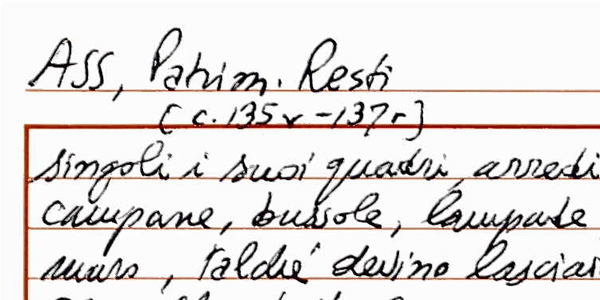 ASS, Patrim. Resti
[c. 135v - 137r]
singoli i suoi quadri, arredi
campane, bussole, lampade
muro, talché devino lasciar